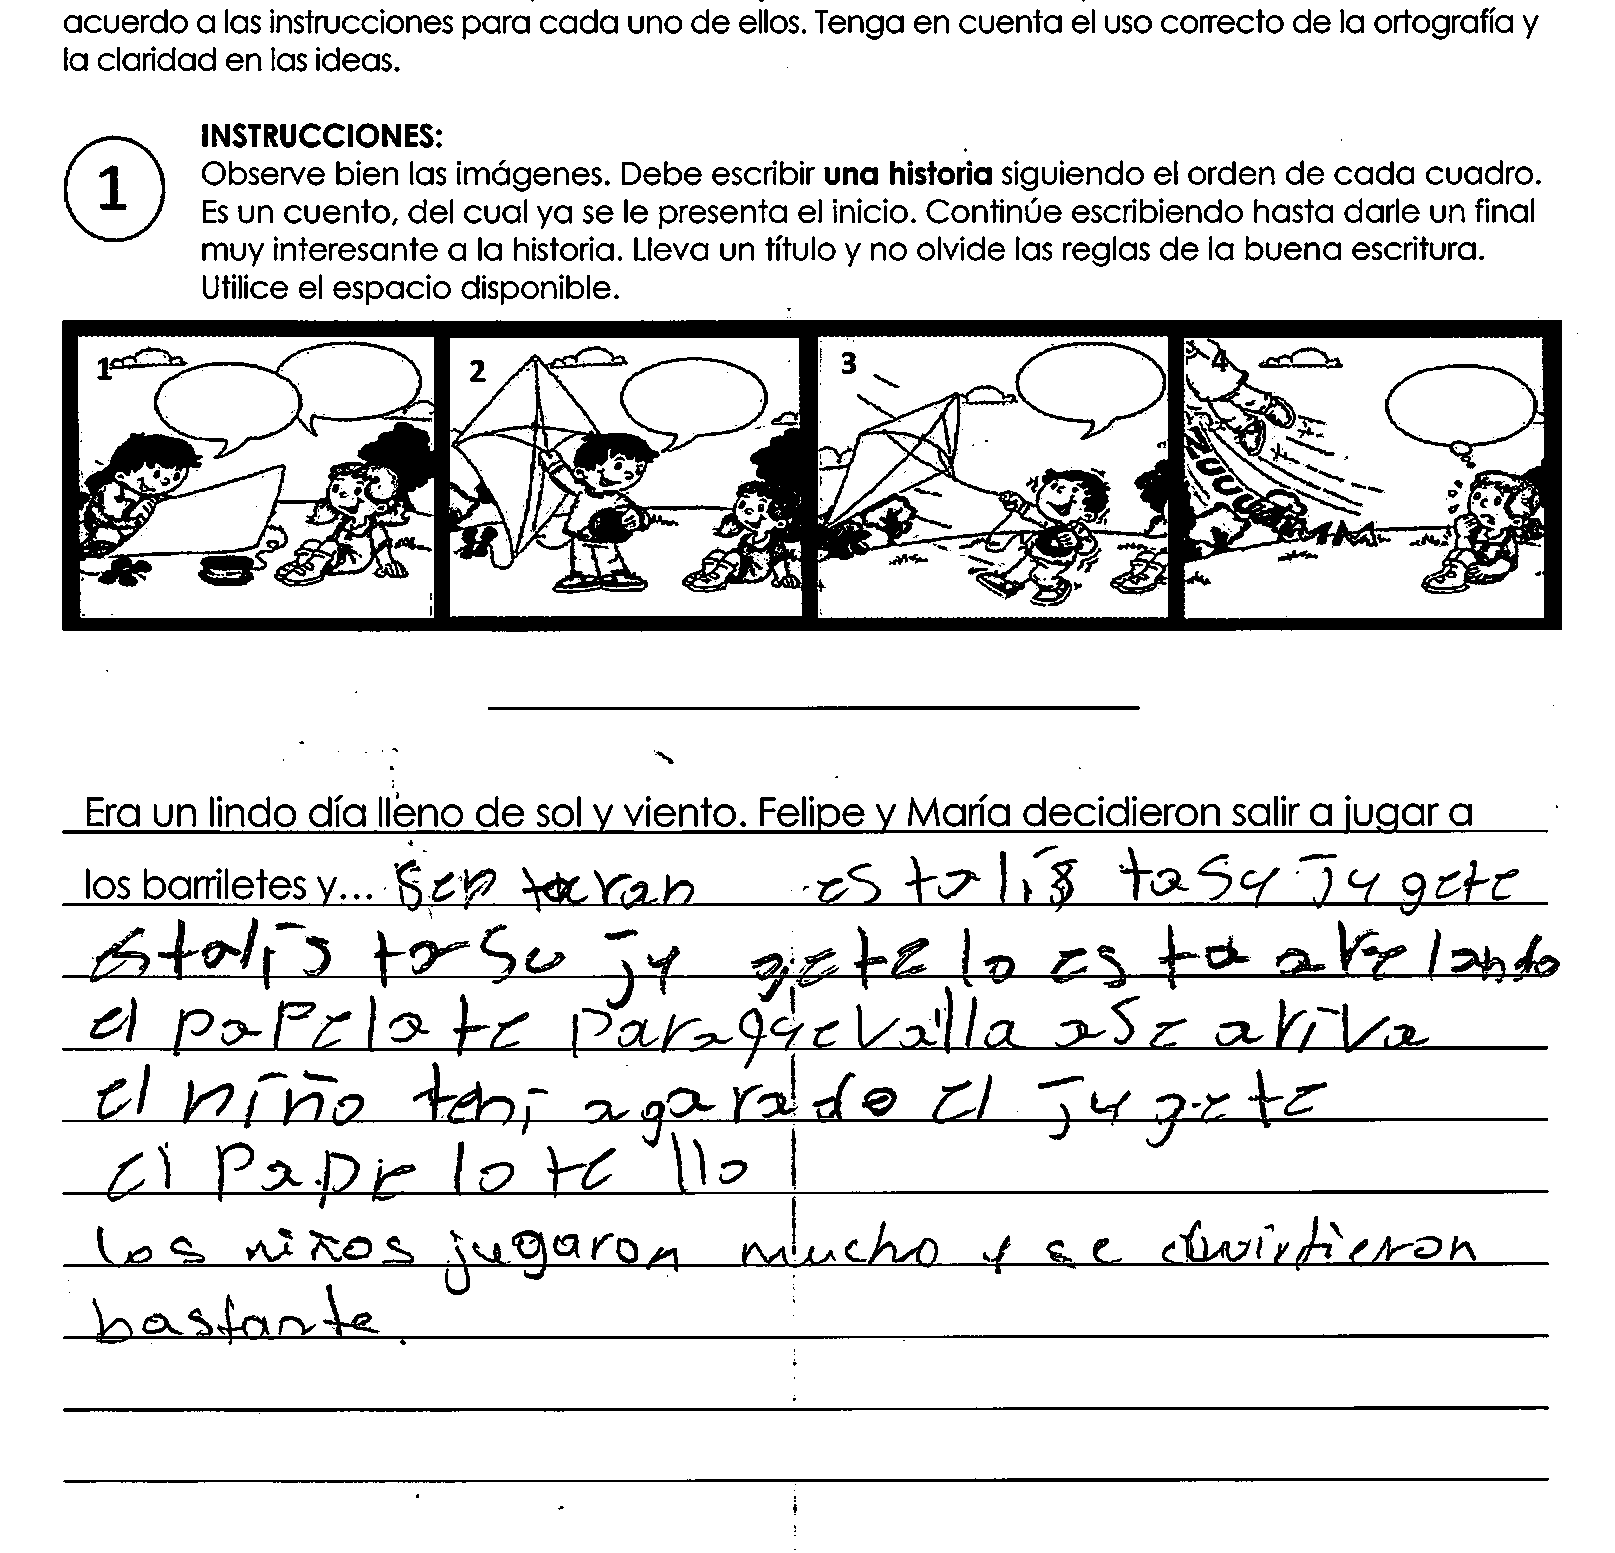 acuerdo a las instrucciones para cada uno de ellos. Tenga en cuenta el uso correcto de la ortografía y
la claridad en las ideas.
INSTRUCCIONES:
1
Observe bien las imágenes. Debe escribir una historia siguiendo el orden de cada cuadro.
Es un cuento, del cual ya se le presenta el inicio. Continúe escribiendo hasta darle un final
muy interesante a la historia. Lleva un título y no olvide las reglas de la buena escritura.
Utilice el espacio disponible.
1 2 3 4
Era un lindo día lleno de sol y viento. Felipe y María decidieron salir a jugar a
los barriletes y... sen taran es ta lis ta su jugete
estalis ta su ju gete lo es ta arelando
el papelote para que valla ase ariva
el niño teni agarado el jugete
el papelote llo
los niños jugaron mucho y se divirtieron
bastante.